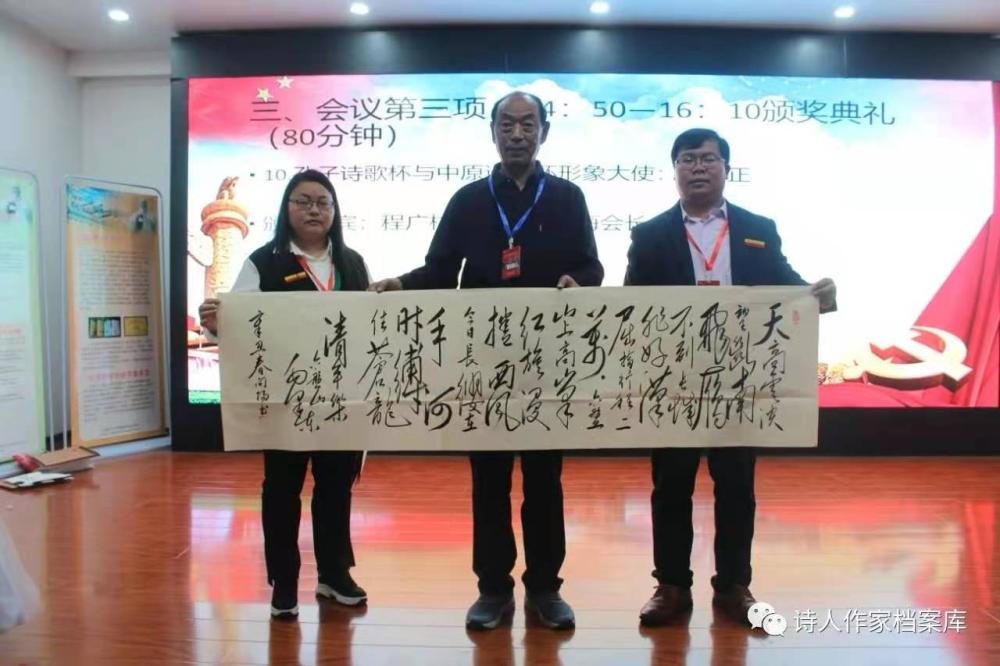 三、会议第三项 4：50—16：10颁奖典礼
（80分钟）
• 10 孔子诗歌杯与中原 杯形象大使： 正
颁 宾：程广 会长
天高云淡
望断南
飞雁
不到长城
非好汉
屈指行程二
万 六盘
山上高峰
红旗漫
捲西风
今日长缨在
手 何
时缚
住苍龙
清平乐
六盘山
毛泽东
辛丑春向阳书
诗人作家档案库